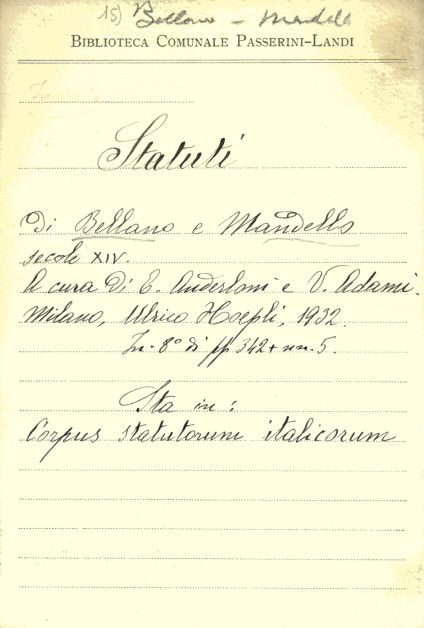 15) Bellano - Mandello
BIBLIOTECA COMUNALE PASSERINI-LANDI
Statuti
di Bellano e Mandello
secolo XIV.
A cura di E. Anderloni e V. Adami.
Milano, Ulrico Hoepli, 1932.
In-8º di pp. 342 + nn. 5.
Sta in:
Corpus statutorum italicorum